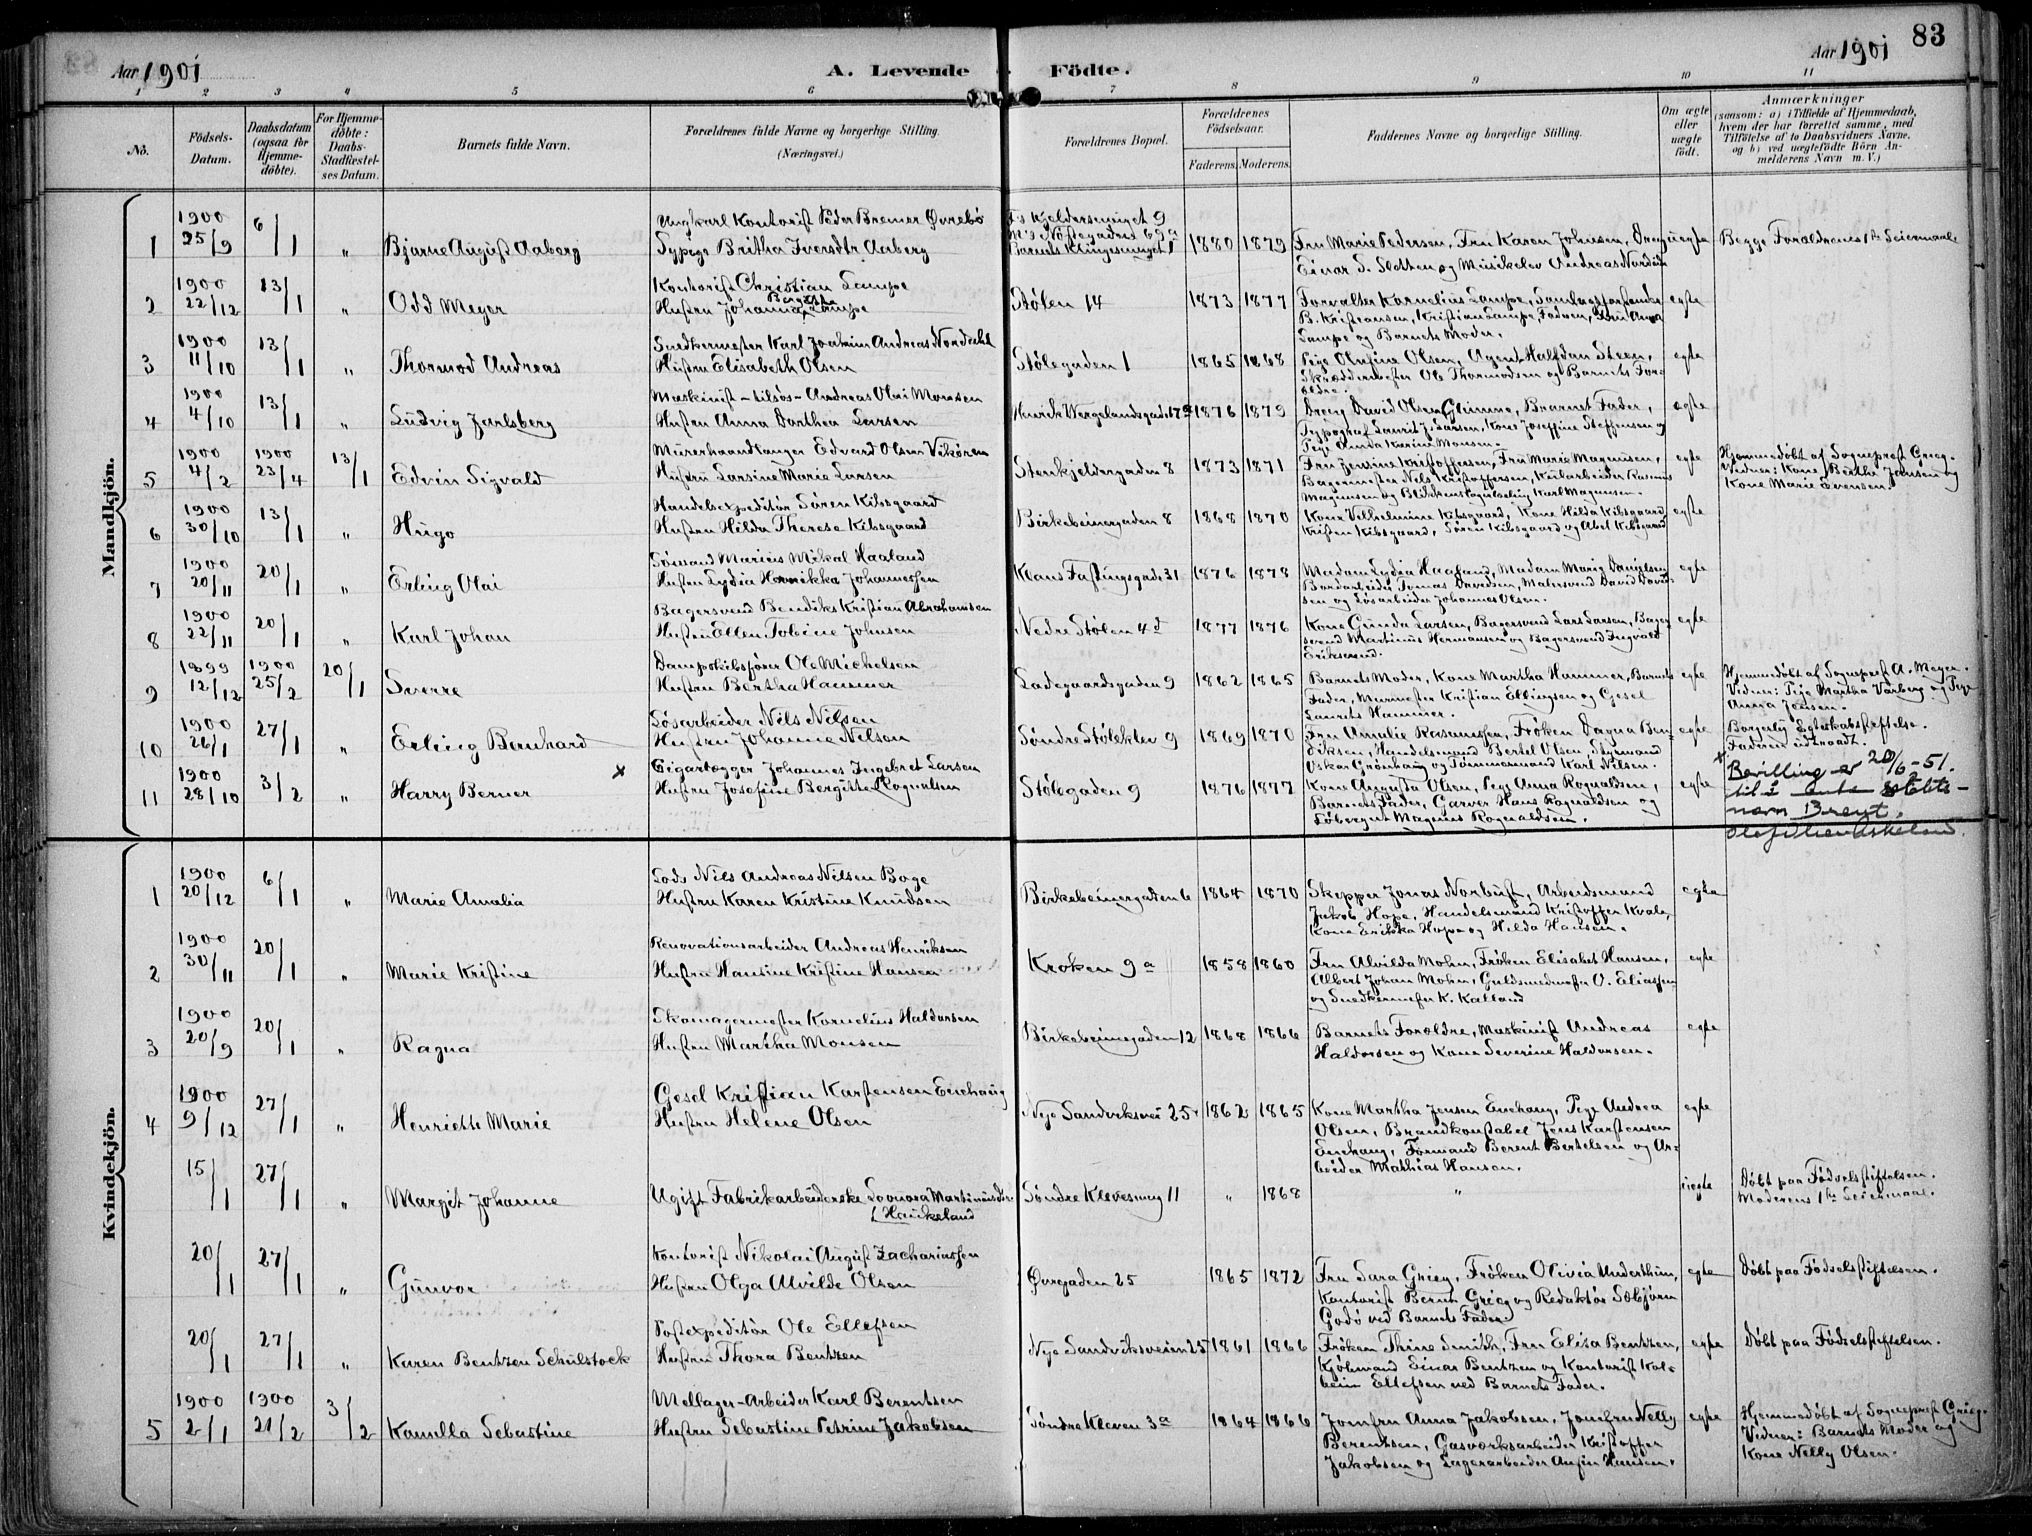 83
Aar 1901
A. Levende Födte.
Aar 1901
1 2 3 4 5 6 7 8 9 10 11
No.
Födsels-
Datum.
Daabsdatum
(ogsaa for
Hjemme-
döbte).
For Hjemme-
döbte:
Daabs-
Stadfæstel-
ses Datum.
Barnets fulde Navn.
Forældrenes fulde Navne og borgerlige Stilling.
(Næringsvei.)
Forældrenes Bopæl.
Forældrenes
Födselsaar.
Faderens. Moderens.
Faddernes Navne og borgerlige Stilling.
Om ægte
eller
uægte
født.
Anmærkninger
(saasom: a) i Tilfælde af Hjemmedaab,
hvem der har forrettet samme, med
Tilföielse af to Daabsvidners Navne,
og b) ved uægtefödte Börn An-
melderens Navn m. V.)
Mandkjön.
1 1900 25/9 6/1 " Bjarne August Aaberg
Ungkarl Kontorist Peder Bremer Øvrebö
Sypige Britha Iversdtr Aaberg
1880 1879
Fru Marie Pedersen, Fru Karen Johnsen, Dreng
Einar S. Sletten og Musikelev Andreas
uegte
Begge Forældrenes 1ste Leiermaal
2 1900 22/12 13/1 " Odd Meyer
Kontorist Christian Lampe
Hustru Johanna Bergitte Lampe
Stölen 14
1873 1877
Forvalter Kornelius Lampe,
B. Kristiansen, Kristian Lampe, Fru Anna
Lampe og Barnets Moder.
egte
3 1900 11/10 13/1 " Thormod Andreas
Snedkermester Karl Joakim Andreas Nordahl
Hustru Elisabeth Olsen
Stölegaden 1
1865 1868
Pige Olufine Olsen, Agent Halfdan Steen,
Skræddermester Ole Thormodsen og Barnets For-
ældre.
egte
4 1900 4/10 13/1 " Ludvig Jarlsberg
Maskinist - tilsös - Andreas Olai Monsen
Hustru Anna Dorthea Larsen
Henrik Wergelandsgade 17
1876 1879
Dreng David Olsen Glimme, Barnets Fader,
Typograf Laurits J. Larsen, Kone Josefine Steffensen og
Pige Amda Karine Monsen.
egte
5 1900 4/2 1900 23/4 13/1 Edvin Sigvald
Murerhaandlanger Edvard Olsen Vikören
Hustru Larsine Marie Larsen
Stenkjeldergaden 8
1873 1871
Fru Jensine Kristoffersen, Fru Marie Magnussen,
Bagermester Nils Kristoffersen, Kularbeider Rasmus
Magnussen og Karl Magnussen.
egte
Hjemmedöbt af Sogneprest Grieg.
Vidner: Kone Berthe Jansen og
Kone Marie Evensen.
6 1900 30/10 13/1 " Hugo
Handelsexpeditör Sören Kibsgaard
Hustru Hilda Therese Kibsgaard
Birkebeinergaden 8
1868 1870
Kone Velhelmine Kibsgaard, Kone Hilda Kibsgaard,
Kristen Kibsgaard, Sören Kibsgaard og Abel Kibsgaard
egte
7 1900 20/11 20/1 " Erling Olai
Sömand Marius Mikal Haaland
Hustru Lydia Henrikka Johannessen
Klaus Fastingsgade 31
1876 1878
Madam Lydia Haaland, Madam Marie Danielsen,
Bordarbeider Tomas Davidsen, Malersvend David David-
sen og Lösarbeider Johannes Olsen.
egte
8 1900 22/11 20/1 " Karl Johan
Bagersvend Bendiks Kristian Abrahamsen
Hustru Ellen Tobine Johnsen
Nedre Stölen 4d
1877 1876
Kone Gunda Larsen, Bagersvend Lars Larsen, Bager-
svend Martinus Hermansen og Bagersvend Ingvald
Eriksen.
egte
9 1899 12/12 1900 25/2 20/1 Sverre
Dampskibsförer Ole Michelsen
Hustru Bertha Hammer
Ladegaardsgaden 9
1862 1865
Barnets Moder, Kone Martha Hammer, Barnets
Fader, Murmester Kristian Ellingsen og Gesel
Laurits Hammer.
egte
Hjemmedöbt af Sogneprest A. Meyer.
Vidner: Pige Martha Varberg og Pige
Anna Jensen.
10 1900 26/1 27/1 " Erling Bernhard
Lösarbeider Nils Nilsen
Hustru Johanne Nilsen
Söndre Stöleklev 9
1869 1870
Fru Amalie Rasmussen, Fröken Dagna Ben-
diksen, Handelsmand Bertel Olsen, Styrmand
Oskar Grönhaug og Tömmermand Karl Nilsen.
egte
Borgerlig Egteskabsstiftelse.
Faderen udtraadt.
11 1900 28/10 3/2 " Harry Berner x
Cigarlægger Johannes Ingebret Larsen
Hustru Josefine Bergitte Rognalsen
Stölegaden 9
1876 1877
Kone Augusta Olsen, Pige Anna Rognaldsen,
Barnets Fader, Garver Hans Rognaldsen og
Magnus Rognaldsen.
egte
x Bevilling av 20/6-51.
til å slekts-
navn Brent.
Kvindekjön.
1 1900 20/12 6/1 " Marie Amalia
Lods Nils Andreas Nilsen Boge
Hustru Karen Kristine Knudsen
Birkebeinergaden 6
1864 1870
Skipper Jonas Norbust, Arbeidsmand
Jakob Hope, Handelsmand Kristoffer Kvale,
Kone Erikka Hope og Hilda Hansen.
egte
2 1900 30/11 20/1 " Marie Kristine
Renovationsarbeider Andreas Henriksen
Hustru Hansine Kristine Hansen
Kroken 9a
1858 1860
Fru Alvilda Mohn, Fröken Elisabet Hansen,
Albert Johan Mohn, Guldsmedmester O. Eliassen
og Snedkermester K. Kalland
egte
3 1900 20/9 20/1 " Ragna
Skomagermester Kornelius Haldorsen
Hustru Martha Monsen
Birkebeinergaden 12
1868 1866
Barnets Forældre, Maskinist Andreas
Haldorsen og Kone Severine Haldorsen.
egte
4 1900 9/12 27/1 " Henriette Marie
Gesel Kristian Karstensen Enehaug
Hustru Helene Olsen
Nye Sandviksvei 25
1862 1865
Kone Martha Jensen Enehaug, Pige Andrea
Olsen, Brandkonstabel Jens Karstensen
Enehaug, Formand Berent Bertelsen og Ar-
beider Mathias Hansen.
egte
15/1 27/1 " Margit Johanne
Ugift Fabrikarbeiderske Leonora Martinusdtr.
Haukeland
Söndre Klevesmug 11
" 1868
"
uegte
Döbt paa Födselsstiftelsen.
Moderens 1ste Leiermaal.
20/1 27/1 " Gunvor
Kontorist Nikolai August Zachariassen
Hustru Olga Alvilde Olsen
Øvregaden 25
1865 1872
Fru Sara Grieg, Fröken Olivia Underthun,
Kontorist Bernt Grieg og Redaktör Sæbjörn
Godö ved Barnets Fader.
egte
Döbt paa Födselsstiftelsen.
20/1 27/1 " Karen Bentzen Schulstock
Postexpeditör Ole Ellefsen
Hustru Thora Bentzen
Nye Sandviksveien 25
1861 1866
Fröken Thine Smith, Fru Elisa Bentzen,
Kjöbmand Einar Bentzen og Kontorist Kol-
bein Ellefsen ved Barnets Fader.
egte
Döbt paa Födselsstiftelsen.
5 1900 2/1 1900 21/2 3/2 Kamilla Sebastine
Mellager-Arbeider Karl Berentsen
Hustru Sebastine Petrine Jakobsen
Söndre Kleven 3a
1864 1866
Jomfru Anna Jakobsen, Jomfru Nelly
Berentsen, Gasverksarbeider Kristoffer
Jakobsen og Lagerarbeider Anfin Hansen.
egte
Hjemmedöbt af Sogneprest Grieg.
Vidner: Barnets Moder og
Kone Nelly Olsen.